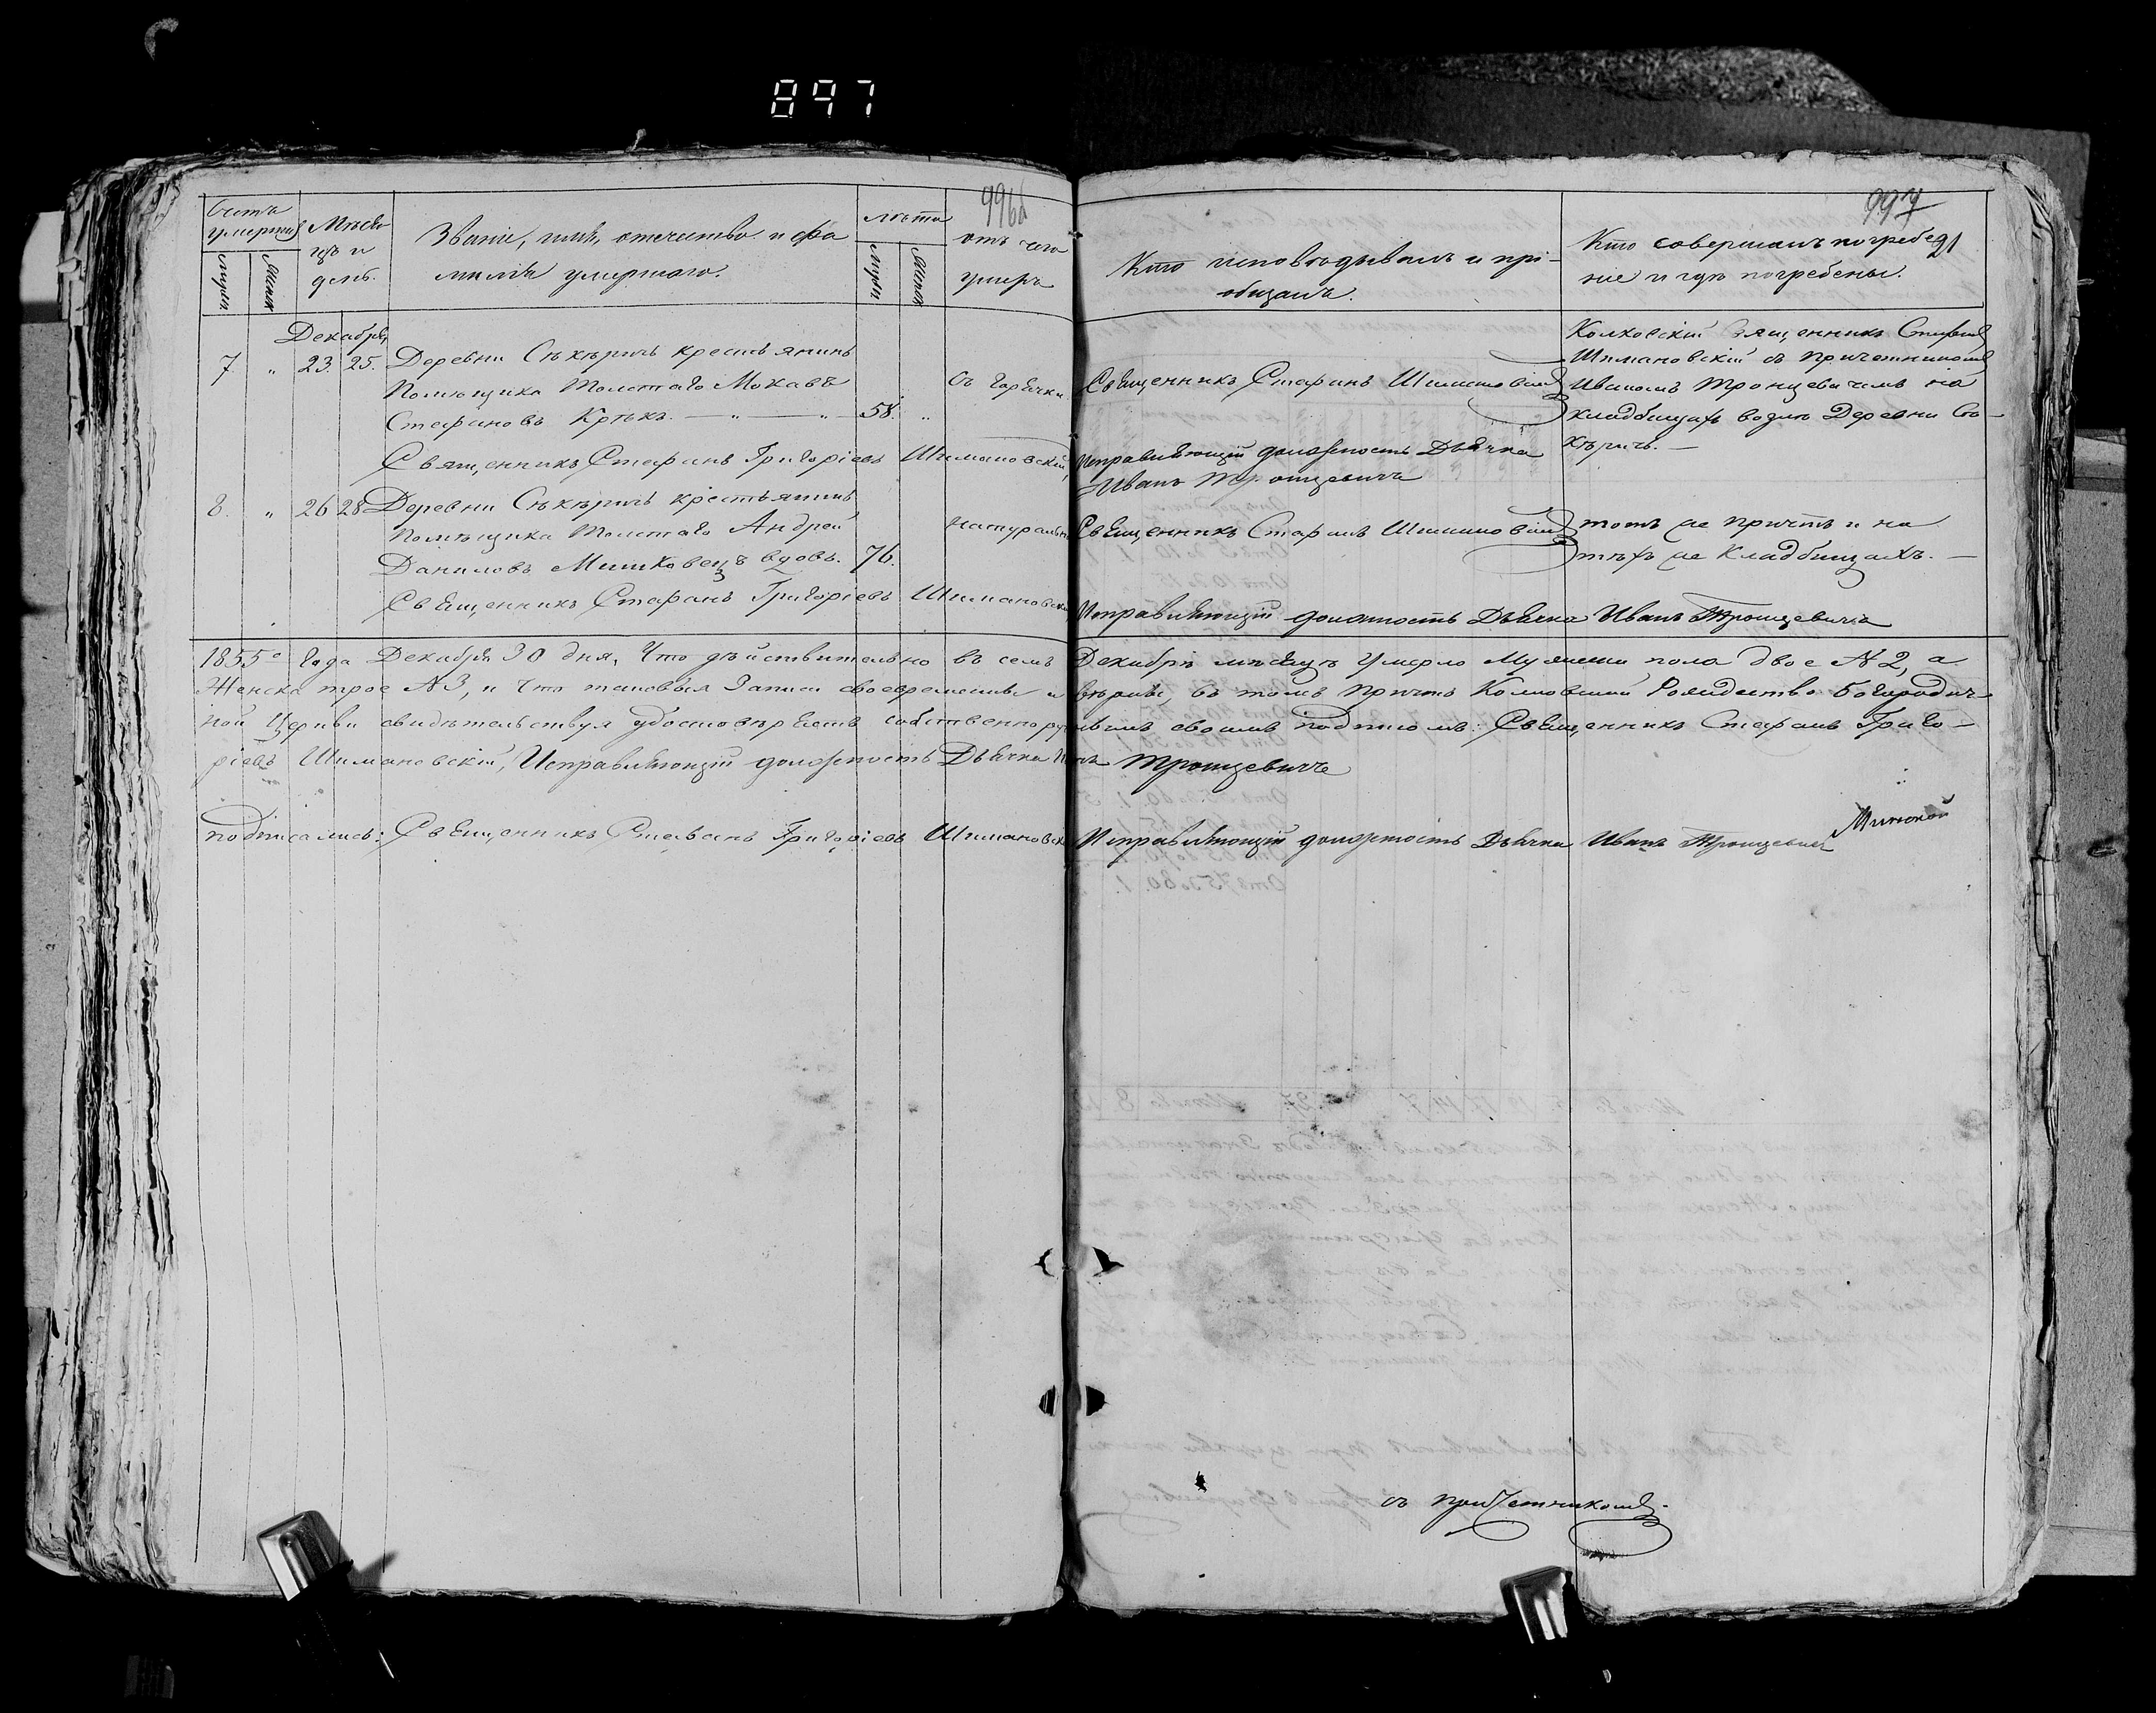 897
996а
997
91
Счетъ умершихъ
Мужи
Женск
Мѣсяцъ и день.
Званіе, имя, отечество и фа
милія умершаго.
лѣта
Мужи
Женск
отъ чего
умеръ
Кто исповѣдывалъ и прі-
общалъ.
Кто совершалъ погребе
ніе и гдѣ погребены.
Декабрь
7. „ 23. 25. Деревни Сѣкѣричъ крестьянинъ
Помѣщика Толстаго
Стефановъ 58. „
съ горячки
Священникъ Стефанъ Шимановскій
Колковскій Священникъ Стефанъ
Шимановскій съ причетникомъ
Иваномъ Троицевичемъ на
кладбищахъ возлѣ Деревни Сѣ-
кѣричъ. —
Священникъ Стефанъ Григоріевъ Шимановскій,
Исправляющій должность Дьячка
Иванъ Троицевичъ
8. „ 26 28 Деревни Сѣкѣричъ крестьянинъ
Помѣщика Толстаго Андрей
Даниловъ Мишковецъ вдовъ. 76.
натурально
Священникъ Стефанъ Шимановскій
тотъ же причтъ и на
тѣхъ же кладбищахъ. —
Священникъ Стефанъ Григоріевъ Шимановскій
Исправляющій должность Дьячка Иванъ Троицевичъ
1855го Года Декабря 30 дня, Что дѣйствительно въ семъ Декабрѣ мѣсяцѣ умерло Мужеска пола двое N 2, а
Женска трое N 3, и что таковыя Записи своевременны и вѣрны, въ томъ причтъ Колковской Рождество-Богородич-
ной Церкви свидѣтельствуя удостовѣряетъ собственноручнымъ своимъ подписомъ: Священникъ Стефанъ Григо-
ріевъ Шимановскій, Исправляющій должность Дьячка Иванъ Троицевичъ
подписались: Священникъ Стефанъ Григоріевъ Шимановскій Исправляющій должность Дьячка Иванъ Троицевичъ
съ причетникомъ